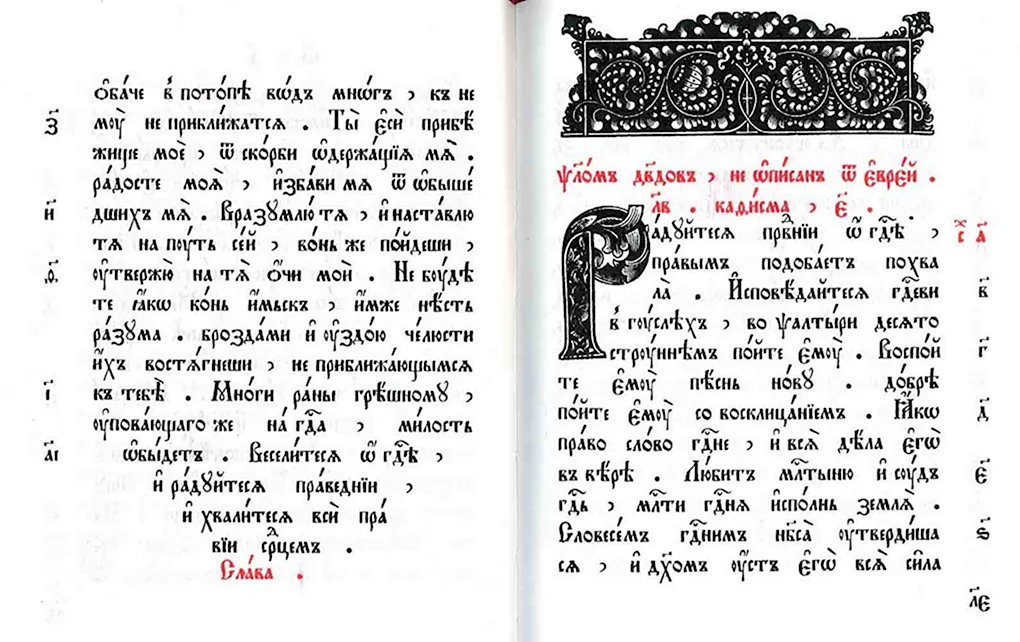 ѻ҆ба́че в҆ пото́пѣ во́дъ мно́гъ , къ не
з҃ мꙋ̀ не прибли́жатсѧ . Ты̀ є҆сѝ прибѣ́
жище моѐ , ѿ ско́рби ѡ҆держа́щїѧ мѧ̀ .
ра́досте моѧ̀ , и҆зба́ви мѧ ѿ ѡ҆быше́
и҃ дшихъ мѧ̀ . Вразꙋмлю́ тѧ , и҆ наста́влю
тѧ на пꙋ́ть се́й , во́нь же по́йдеши ,
ѳ҃ ᲂу҆твержю̀ на тѧ̀ ѻ҆́чи моѝ . Не бꙋ́дѣ
те ꙗ҆́кѡ ко́нь и҆́мьскъ , и҆́мже нѣ́сть
ра́зꙋма . брозда́ми и҆ ᲂу҆здо́ю че́люсти
и҆́хъ востѧ́гнеши , не приближа́ющымсѧ
і҃ къ тебѣ̀ . Мно́ги ра́ны грѣ́шномꙋ ,
ᲂу҆пова́ющаго же на́ гдⷭ҇а , ми́лость
а҃і ѡ҆бы́детъ . Весели́тесѧ ѡ҆ гдⷭ҇ѣ ,
и҆ ра́дꙋйтесѧ пра́веднїи ,
и҆ хвали́тесѧ всѝ пра́
вїи срⷣцемъ .
Сла́ва .
ѱало́мъ дв҃довъ , не ѡ҆пи́санъ ѿ є҆вре́й .
л҃в . каѳи́сма , є҃ .
Ра́дꙋйтесѧ првⷣнїи ѡ҆ гдⷭ҇ѣ , с҃ а҃
пра́вымъ подоба́етъ похва
ла̀ . И҆сповѣ́дайтесѧ гдⷭ҇еви в҃
в҆ гꙋ́слехъ , во ѱалты́ри десѧто
стрꙋ́ннѣмъ по́йте є҆мꙋ̀ . Воспо́й г҃
те є҆мꙋ̀ пѣ́снь но́вꙋ . до́брѣ
по́йте є҆мꙋ̀ со восклица́нїемъ . Ꙗ҆́кѡ д҃
пра́во сло́во гдⷭ҇не , и҆ всѧ̀ дѣ́ла є҆гѡ̀
въ вѣ́рѣ . Лю́битъ млⷭ҇тыню и҆ сꙋ́дъ є҃
гдⷭ҇ь , млⷭ҇ти гдⷭ҇нѧ и҆спо́лнь землѧ̀ .
Словесе́мъ гдⷭ҇нимъ нб҃са̀ ᲂу҆тверди́ша ѕ҃
сѧ , и҆ дх҃омъ ᲂу҆́стъ є҆гѡ̀ всѧ̀ си́ла
л҃е